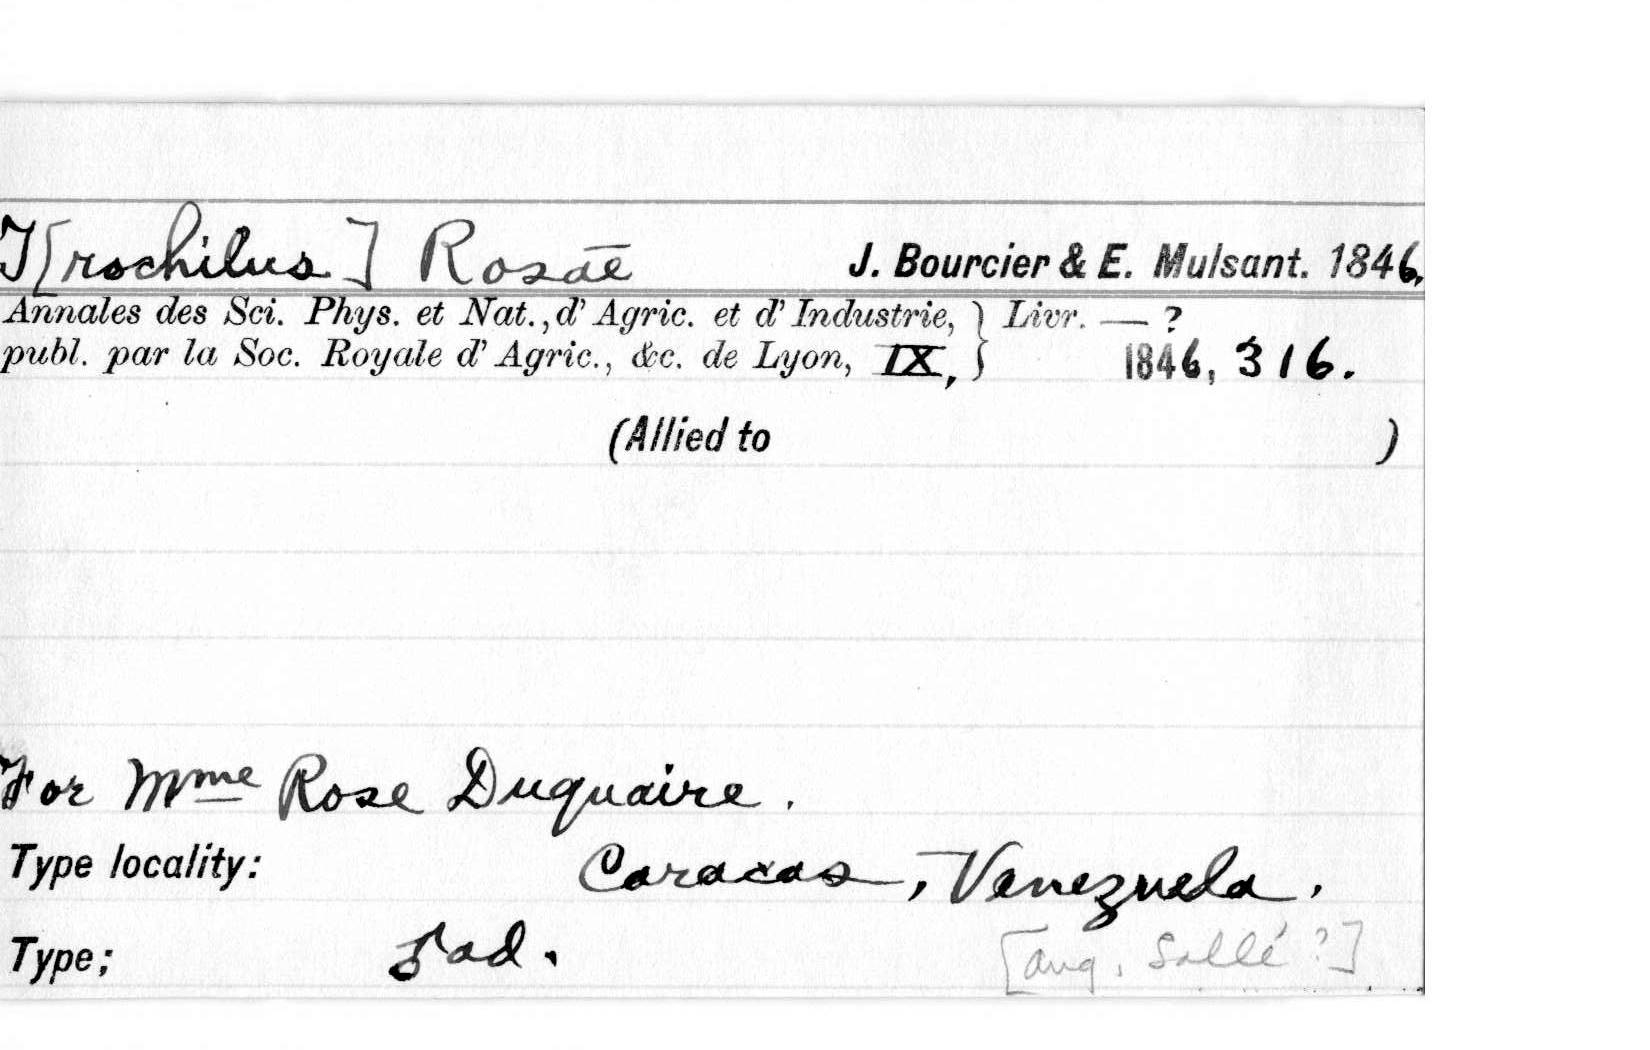 T[rochilus] Rosae J. Bourcier & E. Mulsant. 1846.
Annales des Sci. Phys. et Nat., d' Agric. et d' Industrie, } Livr. — ?
publ. par la Soc. Royale d' Agric., &c. de Lyon, IX, 1846, 316.
(Allied to )
For Mme Rose Duquaire.
Type locality: Caracas, Venezuela.
Type; ad.
[Aug. Sallé ?]